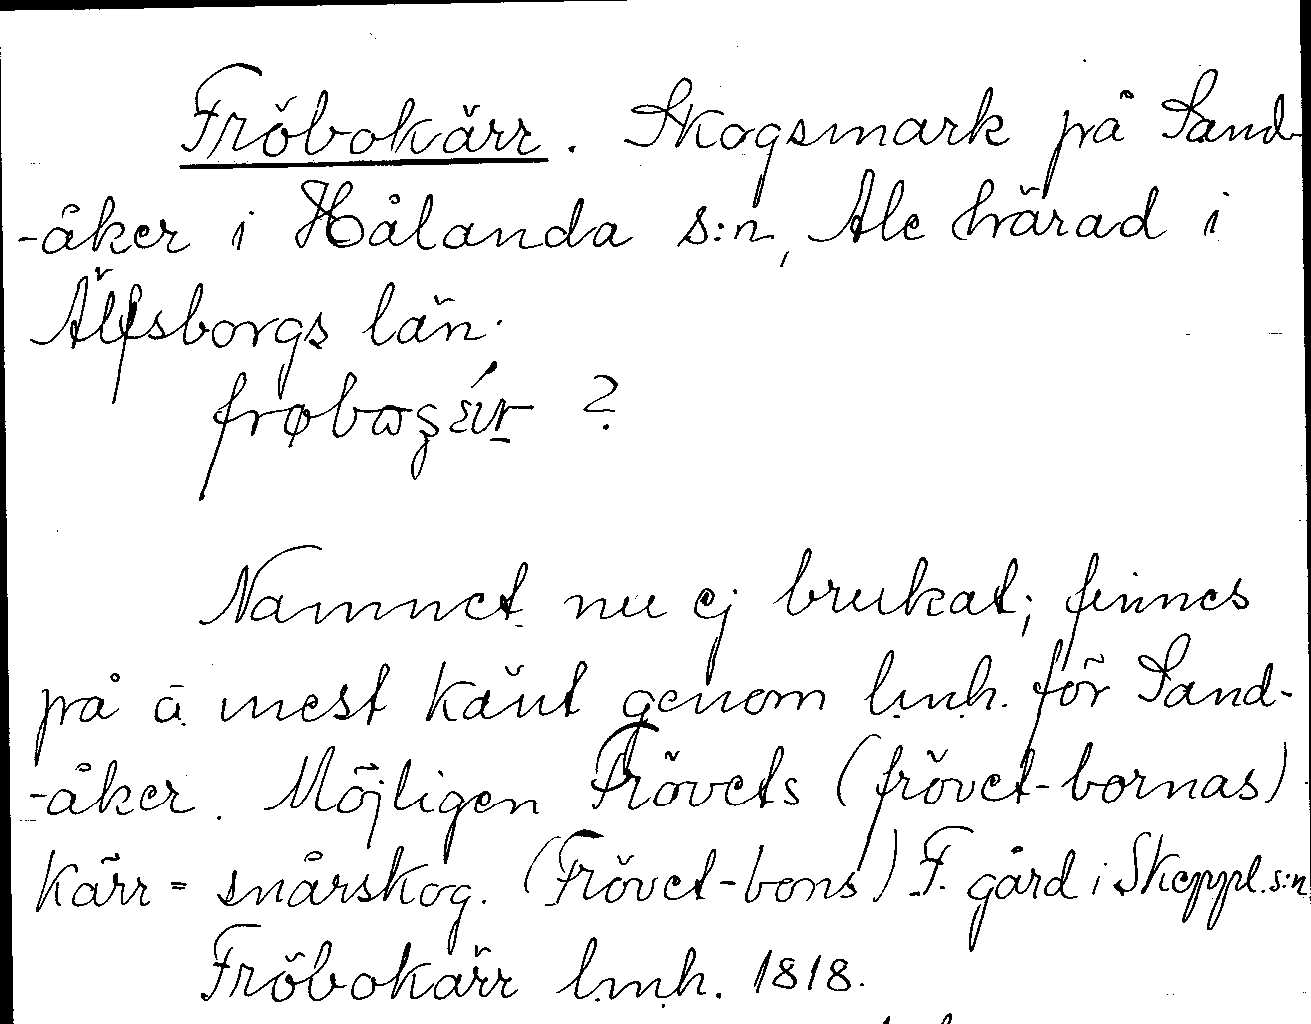 Fröbokärr. Skogsmark på Sand-
-åker i Hålanda s:n, Ale härad i
Älfsborgs län.
?
Namnet nu ej brukat; finnes
på ä. mest känt genom l.m.h. för Sand-
-åker. Möjligen Frövets (frövet-bornas)
kärr = snårskog. (Frövet-bons) F. gård i Skeppl. s:n
Fröbokärr l.m.h. 1818.